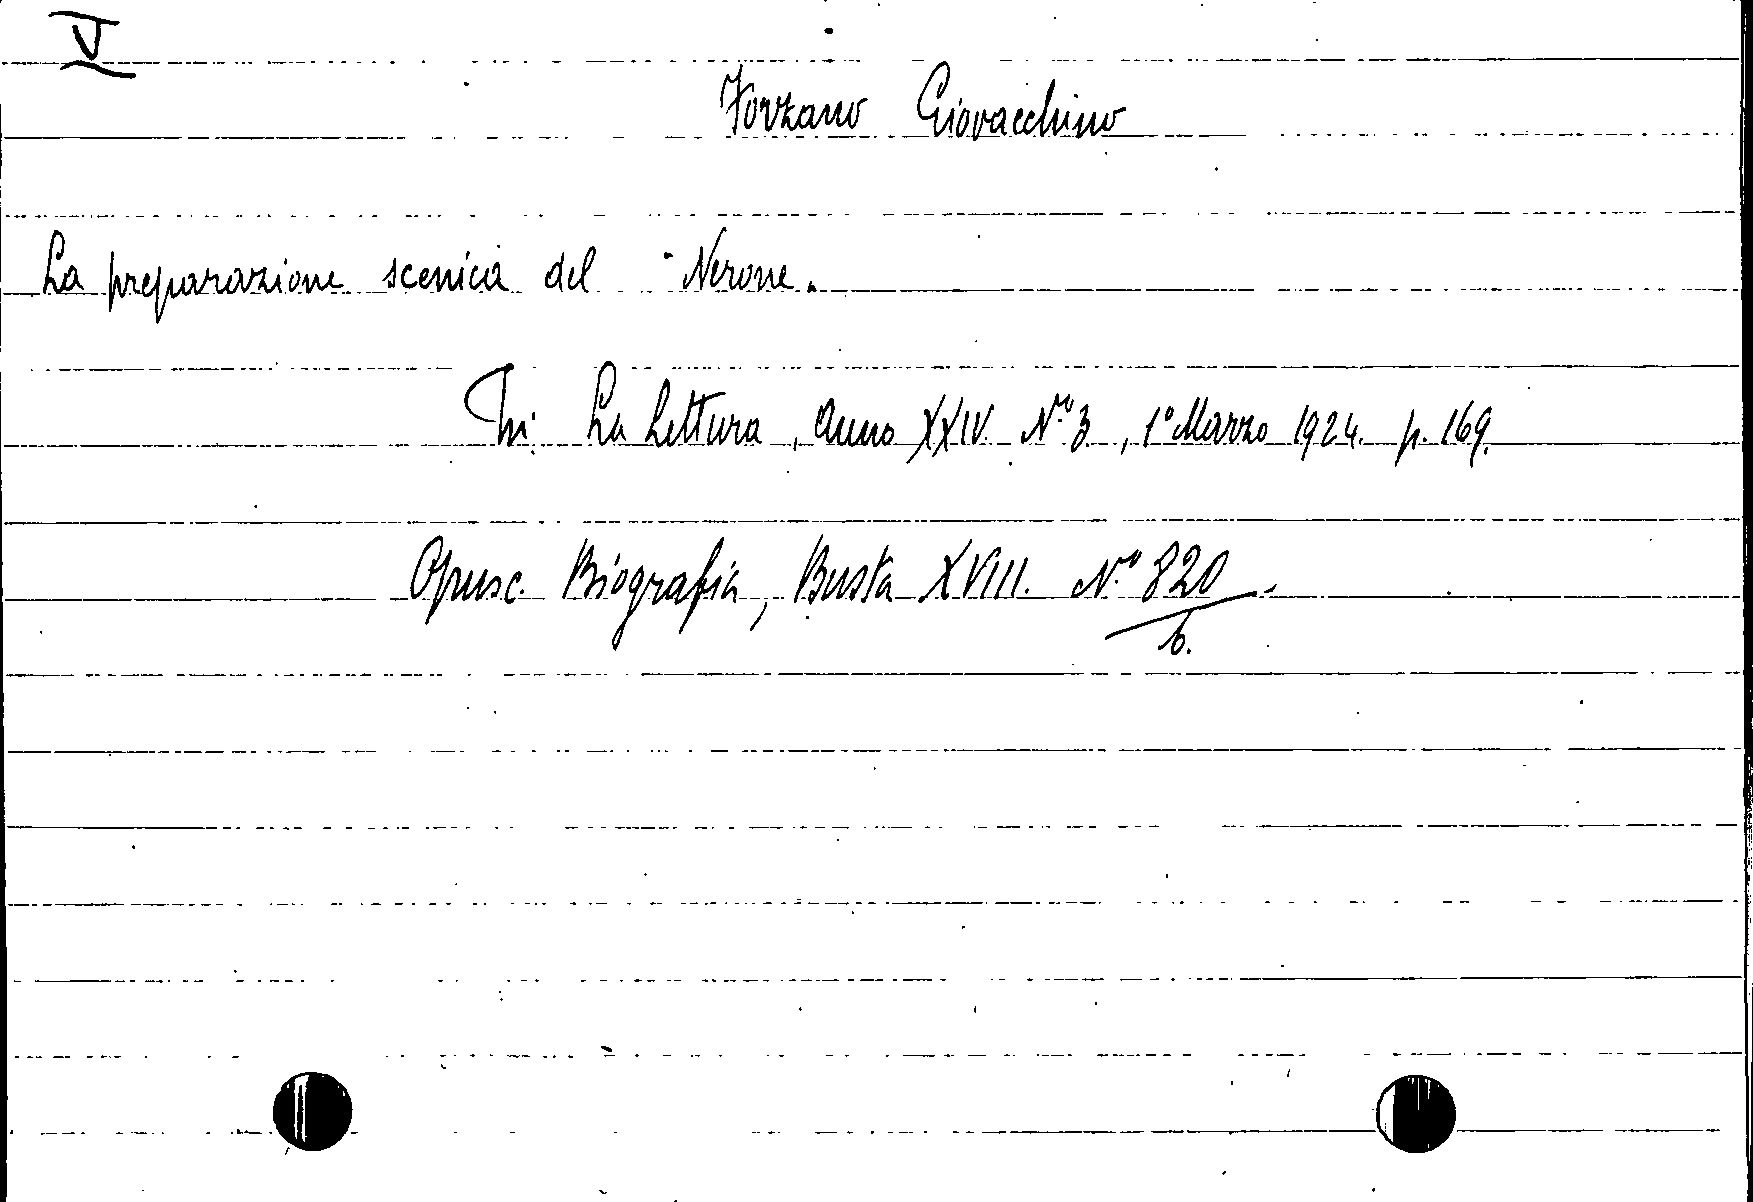 V
Forzano Giovacchino
La preparazione scenica del "Nerone.
In: La Lettura, Anno XXIV. N.ro 3, 1º Marzo 1924. p. 169.
Opusc. Biografia, Busta XVIII. N.º 820
b.